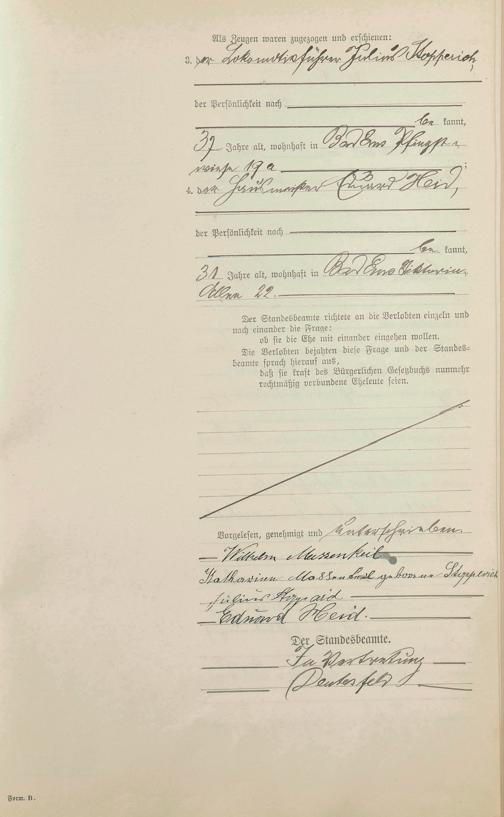 Als Zeugen waren zugezogen und erschienen:
3. der Lokomotivführer Julius
der Persönlichkeit nach
be kannt,
37 Jahre alt, wohnhaft in Bad Ems Pfingst-
wiese 19a
4. der Hausmeister Eduard Heid,
der Persönlichkeit nach
be kannt,
31 Jahre alt, wohnhaft in Bad Ems Viktoria-
Allee 22.
Der Standesbeamte richtete an die Verlobten einzeln und
nach einander die Frage:
ob sie die Ehe mit einander eingehen wollen.
Die Verlobten bejahten diese Frage und der Standes-
beamte sprach hierauf aus,
daß sie kraft des Bürgerlichen Gesetzbuchs nunmehr
rechtmäßig verbundene Eheleute seien.
Vorgelesen, genehmigt und unterschrieben.
Wilhelm
Katharina geborene
Julius
Eduard Heid.
Der Standesbeamte.
In Vertretung
Form. B.